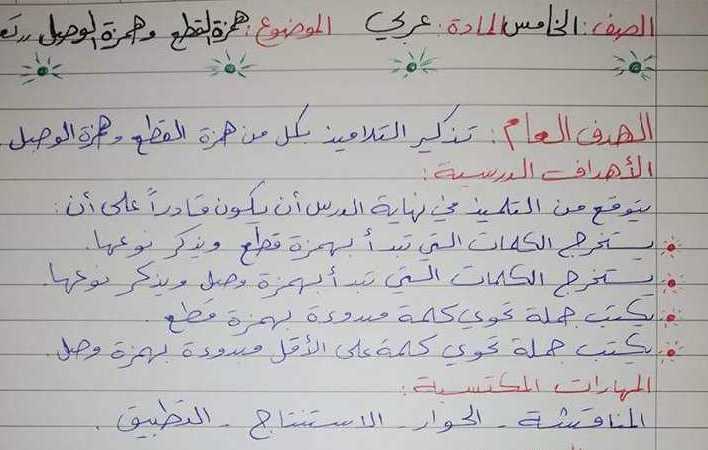 الصف: الخامس المادة: عربي الموضوع: همزة القطع وهمزة الوصل
الهدف العام: تذكير التلاميذ بكل من همزة القطع وهمزة الوصل.
الأهداف الدرسية:
يتوقع من التلميذ في نهاية الدرس أن يكون قادراً على أن:
يستخرج الكلمات التي تبدأ بهمزة قطع ويذكر نوعها.
يستخرج الكلمات التي تبدأ بهمزة وصل ويذكر نوعها.
يكتب جملة تحوي كلمة مبدوءة بهمزة قطع.
يكتب جملة تحوي كلمة على الأقل مبدوءة بهمزة وصل.
المهارات المكتسبة:
المناقشة - الحوار - الاستنتاج - التطبيق.